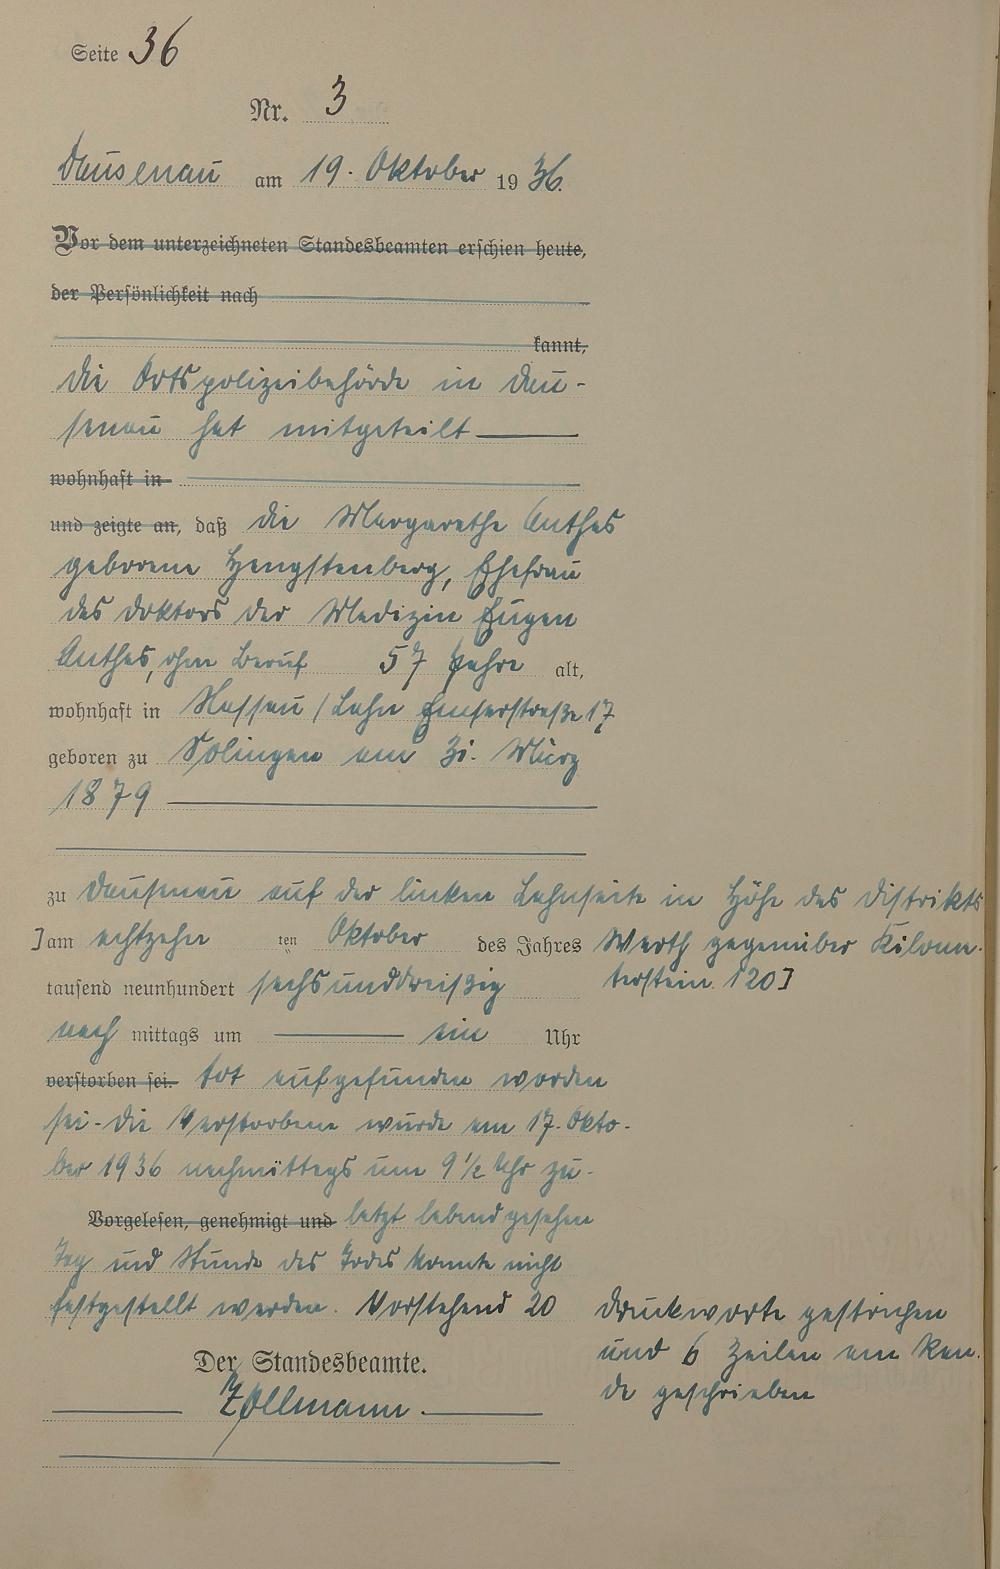 Seite 36
Nr. 3
Dausenau am 19. Oktober 1936.
Vor dem unterzeichneten Standesbeamten erschien heute,
der Persönlichkeit nach
kannt,
die Ortspolizeibehörde in Dau-
senau hat mitgeteilt
wohnhaft in
und zeigte an, daß die Margarethe Anthes
geborene Hengstenberg, Ehefrau
des Doktors der Medizin Eugen
Anthes, ohne Beruf 57 Jahre alt,
wohnhaft in Nassau/Lahn Emserstraße 17
geboren zu Solingen am 31. März
1879
zu Dausenau auf der linken Lahnseite in Höhe des Distrikts
] am achtzehn ten Oktober des Jahres Werth gegenüber Kilome-
tausend neunhundert sechsunddreißig terstein 120]
nach mittags um ein Uhr
verstorben sei. tot aufgefunden worden
sei. Die Verstorbene wurde am 17. Okto-
ber 1936 nachmittags um 9 1/2 Uhr zu-
Vorgelesen, genehmigt und letzt lebend gesehen
Tag und Stunde des Todes konnte nicht
festgestellt werden. Vorstehend 20 Druckworte gestrichen
und 6 Zeilen am Ran-
Der Standesbeamte.
de geschrieben
Zollmann